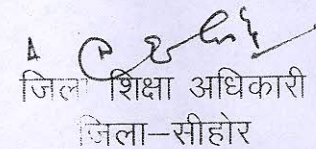 जिला शिक्षा अधिकारी
जिला-सीहोर